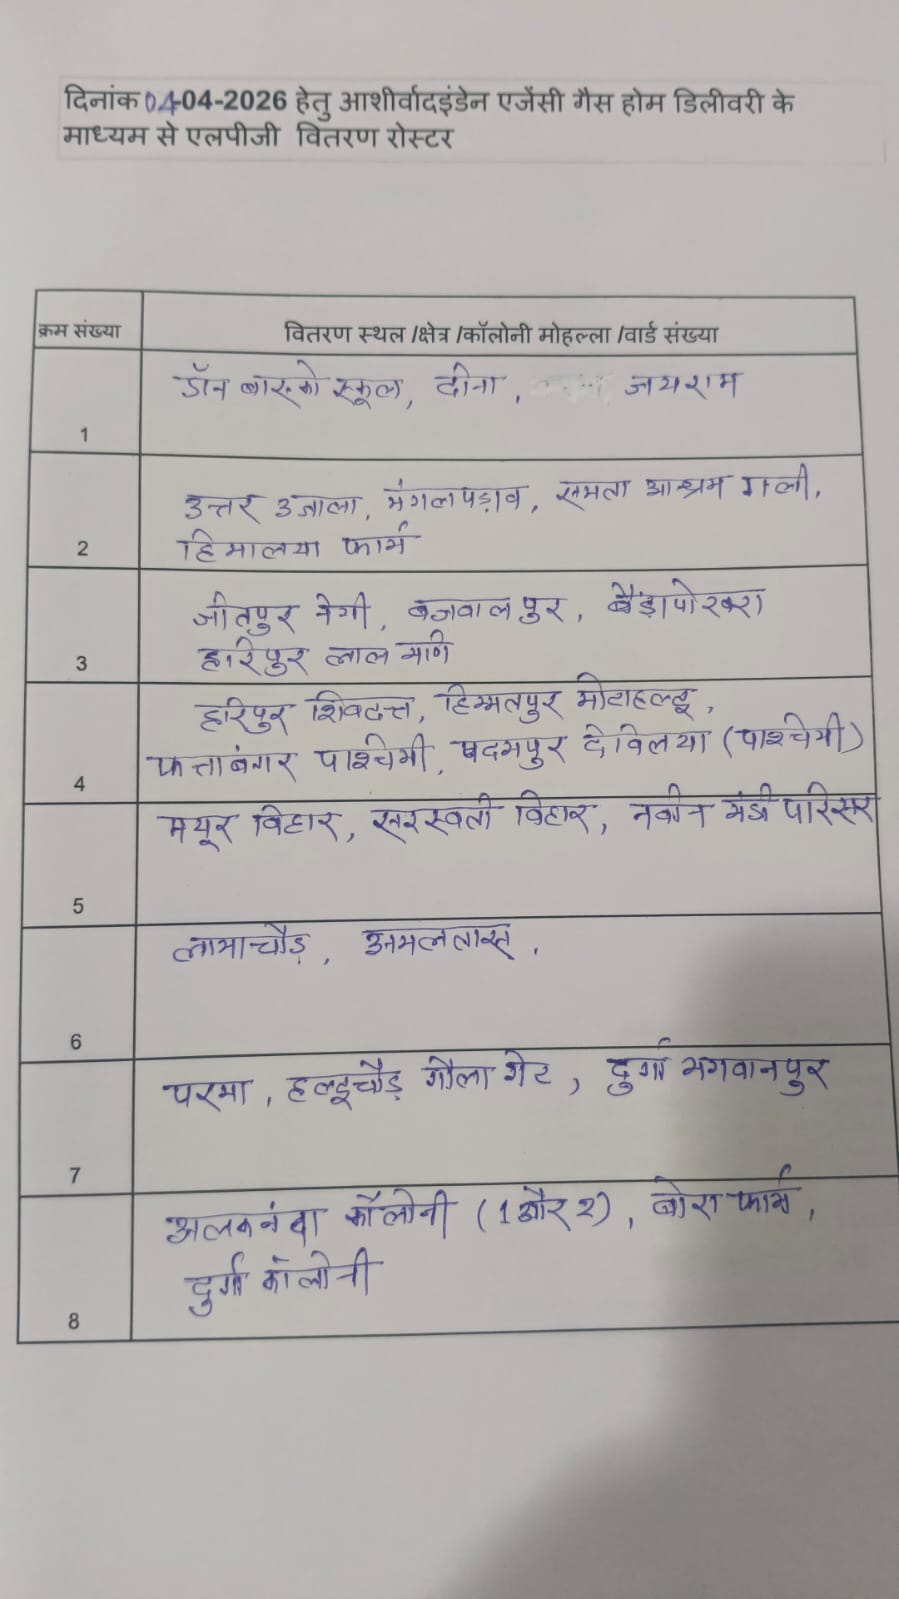 दिनांक 04-04-2026 हेतु आशीर्वादइंडेन एजेंसी गैस होम डिलीवरी के
माध्यम से एलपीजी वितरण रोस्टर
क्रम संख्या वितरण स्थल /क्षेत्र /कॉलोनी मोहल्ला /वार्ड संख्या
1 डॉन बास्को स्कूल, दीना, जयराम
2 उत्तर उजाला, मंगलपड़ाव, समता आश्रम गली,
हिमालया फार्म
3 जीतपुर नेगी, बजवालपुर, बैंडापोखरा
हरिपुर लालमणि
4 हरिपुर शिवदत्त, हिम्मतपुर मोटाहल्दू,
फत्ताबंगर पाश्चिमी, पदमपुर देवलिया (पाश्चिमी)
5 मयूर विहार, सरस्वती विहार, नवीन मंडी परिसर
6 लामाचौड़, अमलतास,
7 परमा, हल्दूचौड़ गौला गेट, दुर्गा भगवानपुर
8 अलकनंदा कॉलोनी (1 और 2), बोरा फार्म,
दुर्गा कॉलोनी